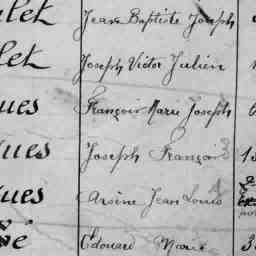 let Jean Baptiste Joseph
let Joseph Victor Julien
ques François Marie Joseph
ques Joseph François
ques Arsène Jean Louis
Edouard Marie